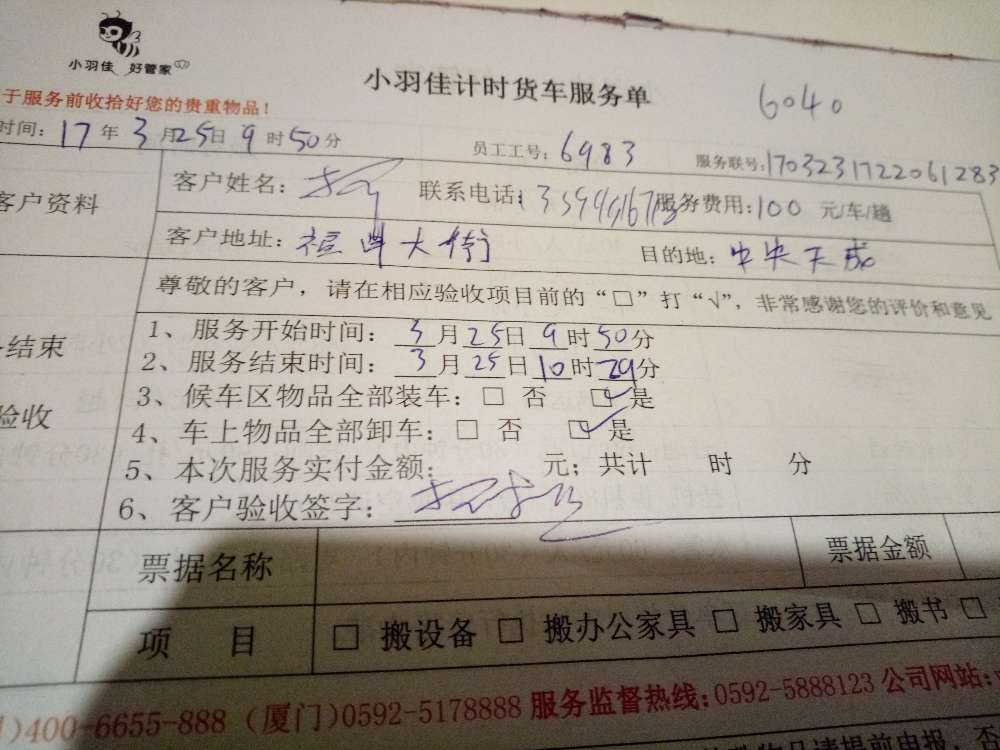 小羽佳 好管家
小羽佳计时货车服务单
6040
于服务前收拾好您的贵重物品！
时间：17年3月25日9时50分
员工工号：6983
服务联号：1703231722061283
客户资料
客户姓名：
联系电话：
服务费用：100 元/车/趟
客户地址：大街
目的地：中央天成
结束
验收
尊敬的客户，请在相应验收项目前的“□”打“√”，非常感谢您的评价和意见
1、服务开始时间：3月25日9时50分
2、服务结束时间：3月25日10时29分
3、候车区物品全部装车：□ 否 ☑ 是
4、车上物品全部卸车：□ 否 ☑ 是
5、本次服务实付金额： 元；共计 时 分
6、客户验收签字：
票据名称
票据金额
项 目
□ 搬设备 □ 搬办公家具 □ 搬家具 □ 搬书 □
)400-6655-888（厦门)0592-5178888 服务监督热线：0592-5888123 公司网站：